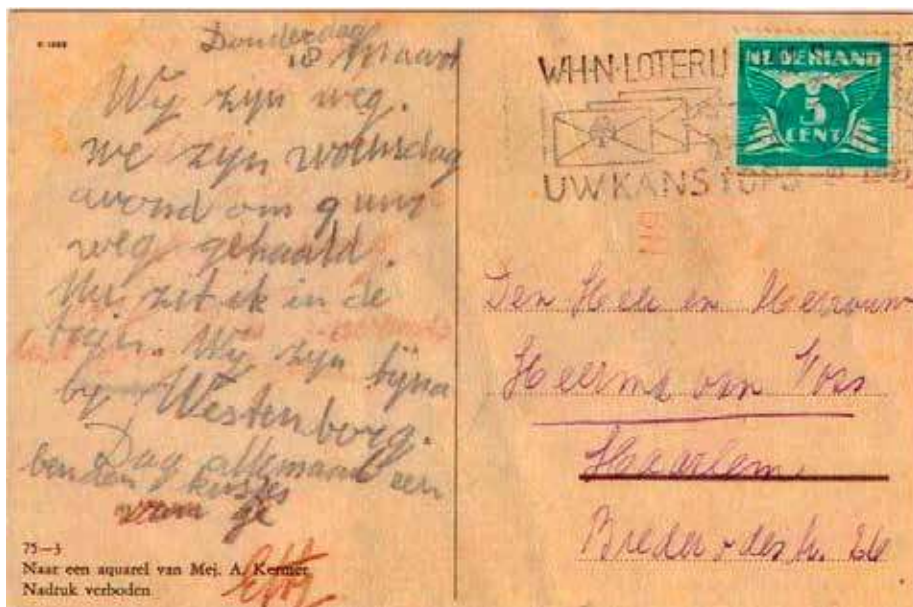 Donderdag
18 Maart
Wij zijn weg.
we zijn woensdag
avond om 9 uur
weg gehaald.
Nu zit ik in de
trein. Wij zijn bijna
bij Westenborg.
Dag allemaal een
kusjes
van je
Etty
75—3
Naar een aquarel van Mej. A. Kermer
Nadruk verboden
W·H·N·LOTERIJ
UW KANS
NEDERLAND
5
CENT
Den Heer en Mevrouw
Heerma van Voss
Haarlem
Brederodestr. 26